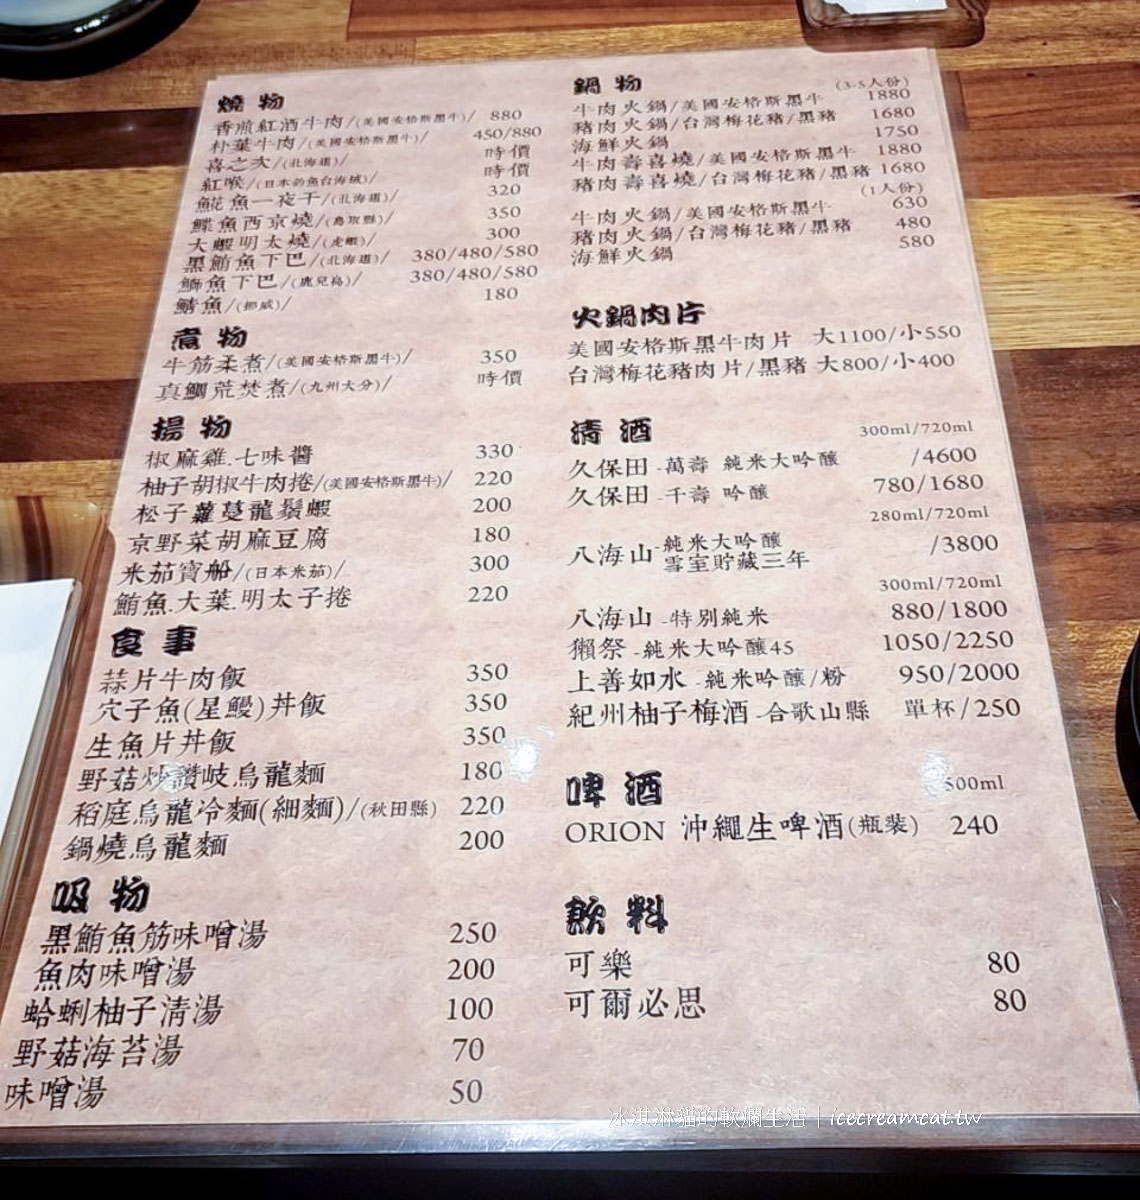 燒物
香煎紅酒牛肉/(美國安格斯黑牛)/ 880
朴葉牛肉/(美國安格斯黑牛)/ 450/880
喜之次/(北海道)/ 時價
紅喉/(日本釣魚台海域)/ 時價
花魚一夜干/(北海道)/ 320
鰈魚西京燒/(鳥取縣)/ 350
大蝦明太燒/(虎蝦)/ 300
黑鮪魚下巴/(北海道)/ 380/480/580
鰤魚下巴/(鹿兒島)/ 380/480/580
鯖魚/(挪威)/ 180
煮物
牛筋柔煮/(美國安格斯黑牛)/ 350
真鯛荒焚煮/(九州大分)/ 時價
揚物
椒麻雞.七味醬 330
柚子胡椒牛肉捲/(美國安格斯黑牛)/ 220
松子蘿蔓龍鬚蝦 200
京野菜胡麻豆腐 180
米茄寶船/(日本米茄)/ 300
鮪魚.大葉.明太子捲 220
食事
蒜片牛肉飯 350
穴子魚(星鰻)丼飯 350
生魚片丼飯 350
野菇炒讚岐烏龍麵 180
稻庭烏龍冷麵(細麵)/(秋田縣) 220
鍋燒烏龍麵 200
吸物
黑鮪魚筋味噌湯 250
魚肉味噌湯 200
蛤蜊柚子清湯 100
野菇海苔湯 70
味噌湯 50
鍋物 (3-5人份)
牛肉火鍋/美國安格斯黑牛 1880
豬肉火鍋/台灣梅花豬/黑豬 1680
海鮮火鍋 1750
牛肉壽喜燒/美國安格斯黑牛 1880
豬肉壽喜燒/台灣梅花豬/黑豬 1680
(1人份)
牛肉火鍋/美國安格斯黑牛 630
豬肉火鍋/台灣梅花豬/黑豬 480
海鮮火鍋 580
火鍋肉片
美國安格斯黑牛肉片 大1100/小550
台灣梅花豬肉片/黑豬 大800/小400
清酒 300ml/720ml
久保田-萬壽 純米大吟釀 /4600
久保田-千壽 吟釀 780/1680
280ml/720ml
八海山-純米大吟釀 /3800
雪室貯藏三年
300ml/720ml
八海山-特別純米 880/1800
獺祭-純米大吟釀45 1050/2250
上善如水-純米吟釀/粉 950/2000
紀州柚子梅酒-合歌山縣 單杯/250
啤酒 500ml
ORION 沖繩生啤酒(瓶裝) 240
飲料
可樂 80
可爾必思 80
冰淇淋貓的軟爛生活｜icecreamcat.tw